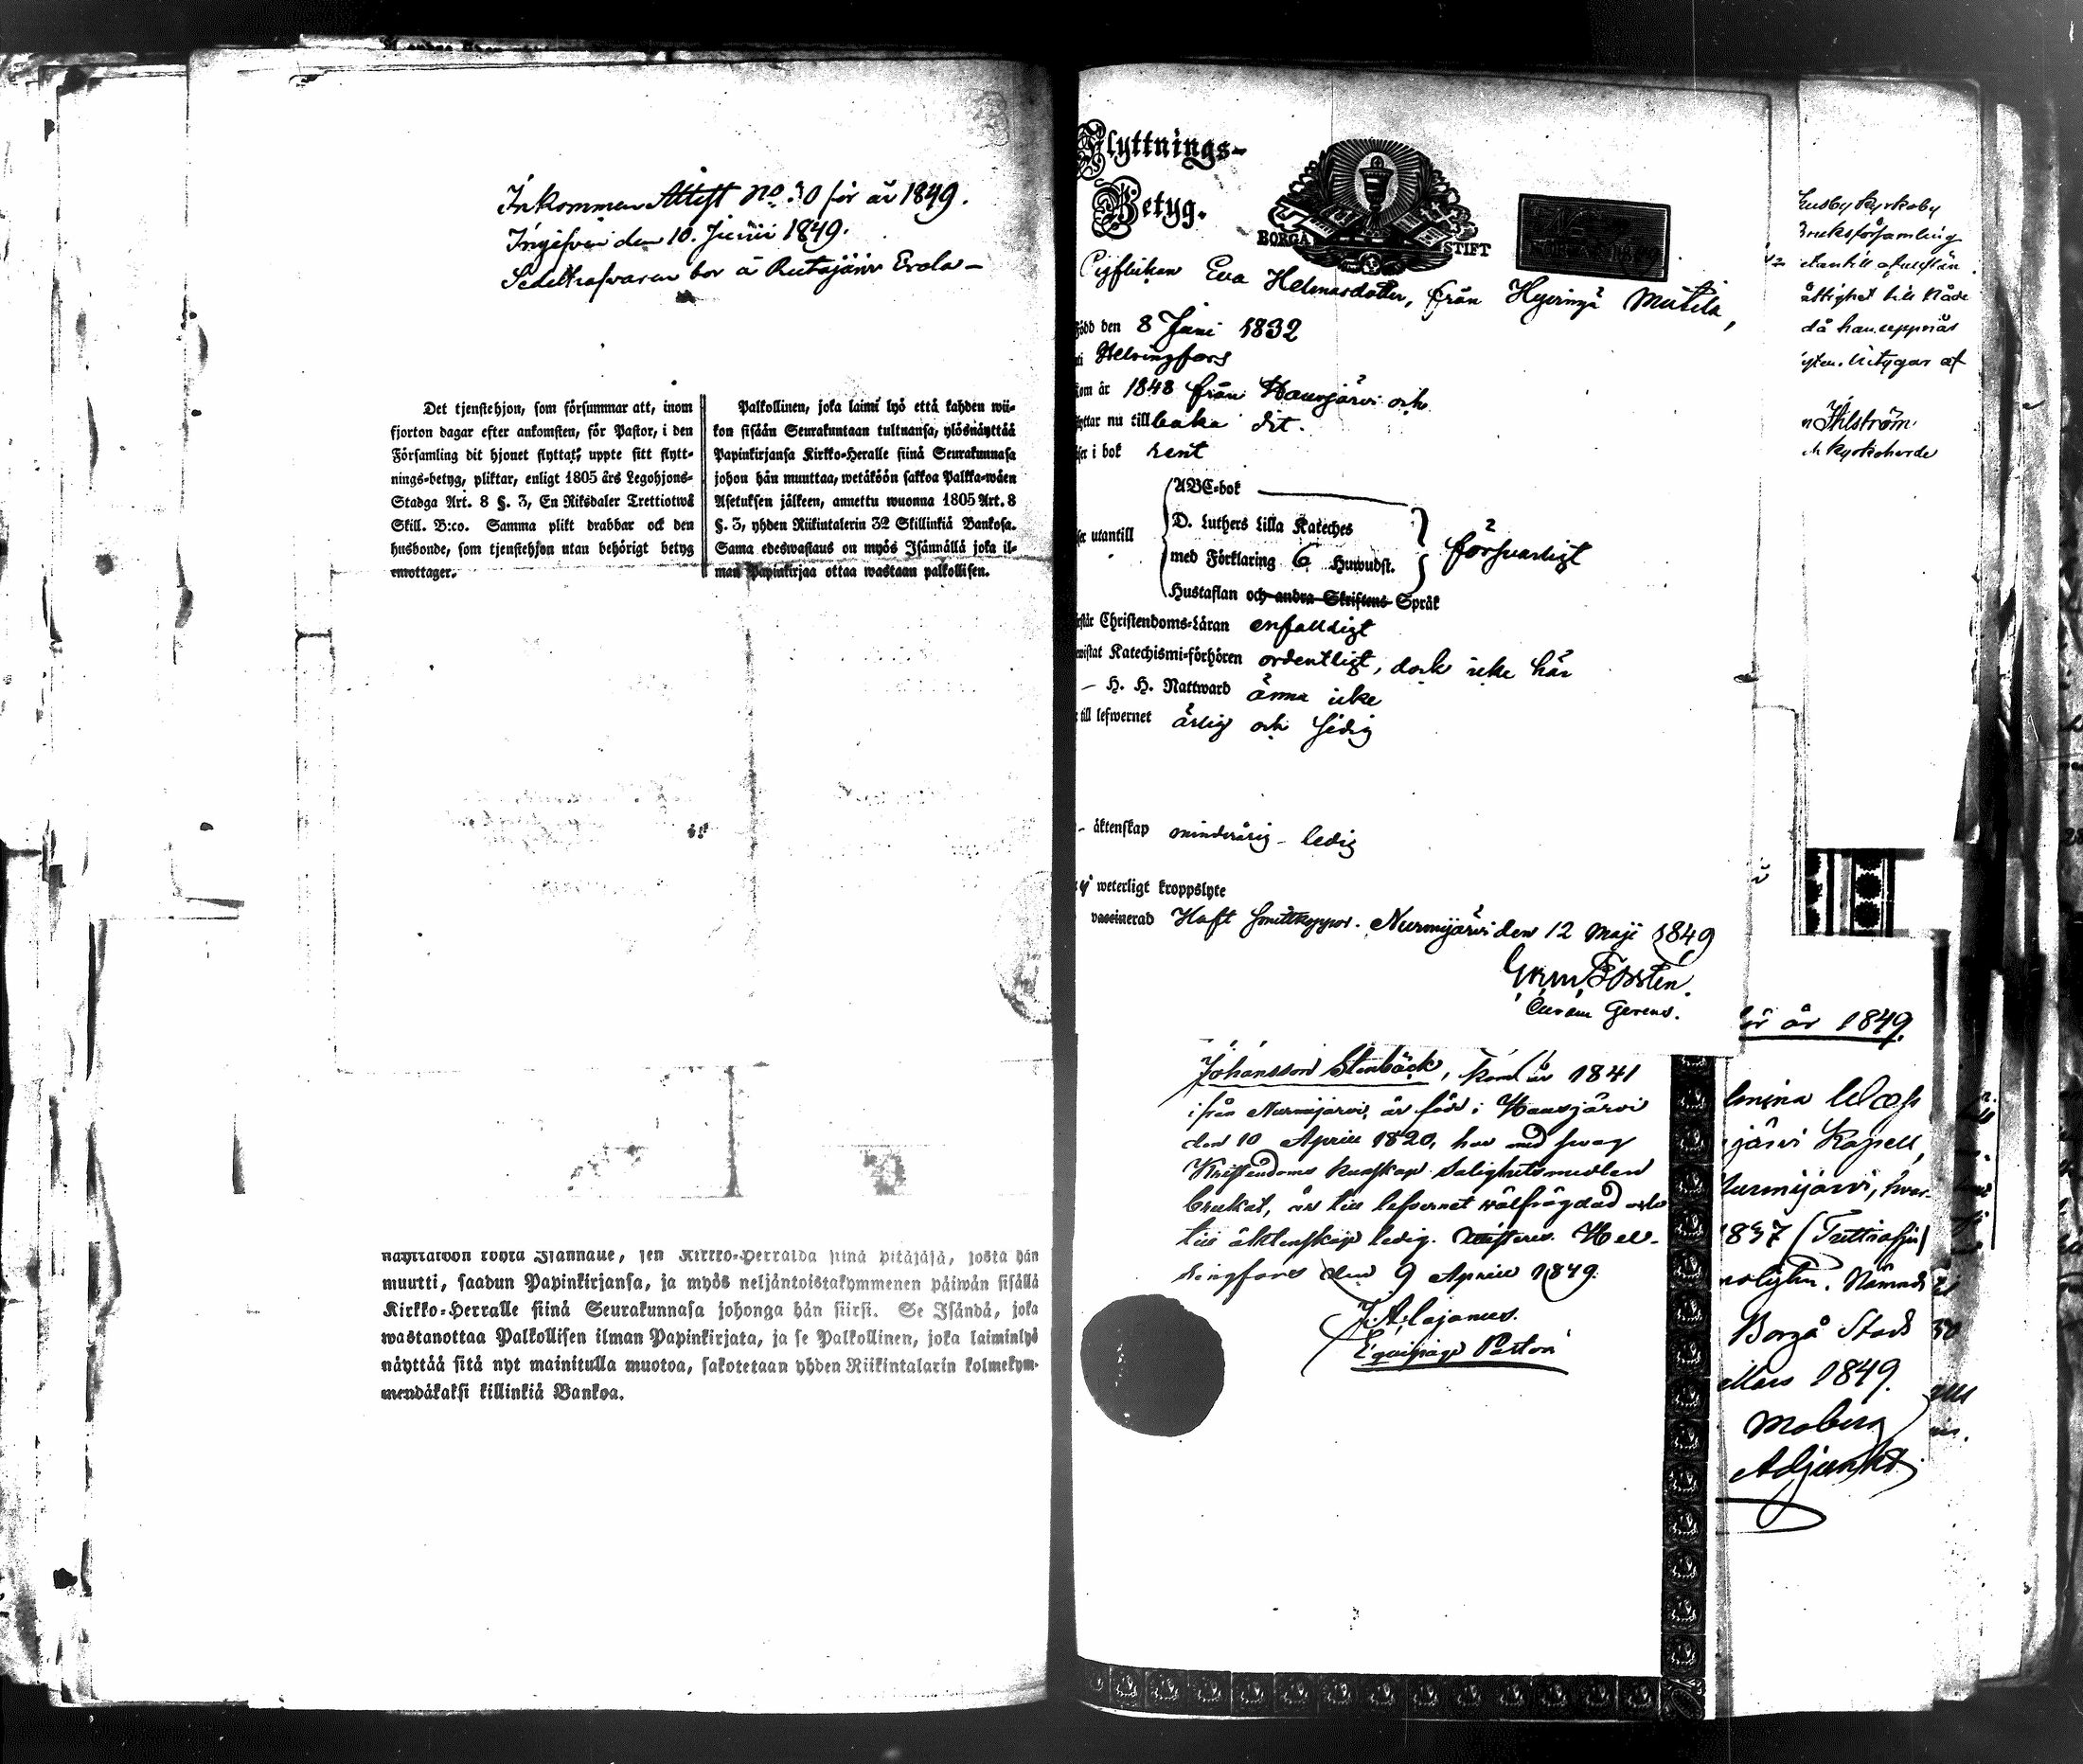 Inkommen Attest No 30 för år 1849.
Ingifven den 10. Junii 1849.
Sedelhafvaren bor å Rutajärvi Erola –
Det tjenstehjon, som försummar att, inom
fjorton dagar efter ankomsten, för Pastor, i den
Församling dit hjonet flyttat, uppte sitt flytt-
nings-betyg, pliktar, enligt 1805 års Legohjons-
Stadga Art. 8 §. 3, En Riksdaler Trettiotwå
Skill. B:co. Samma plikt drabbar ock den
husbonde, som tjenstehjon utan behörigt betyg
emottager.
Palkollinen, joka laimi lyö että kahden wii-
kon sisään Seurakuntaan tultuansa, ylösnäyttää
Papinkirjansa Kirkko-Heralle siinä Seurakunnasa
johon hän muuttaa, wetäköön sakkoa Palkka-wäen
Asetuksen jälkeen, annettu wuonna 1805 Art. 8
§. 3, yhden Riikintalerin 32 Skillinkiä Bankosa.
Sama edeswastaus on myös Isännällä joka il-
man Papinkirjaa ottaa wastaan palkollisen.
näyttäköön kohta Isännälle, sen Kirkko-Herralda siinä pitäjäsä, josta hän
muutti, saadun Papinkirjansa, ja myös neljäntoistakymmenen päiwän sisällä
Kirkko-Herralle siinä Seurakunnasa johonga hän siirsi. Se Isändä, joka
wastanottaa Palkollisen ilman Papinkirjata, ja se Palkollinen, joka laiminlyö
näyttää sitä nyt mainitulla muotoa, sakotetaan yhden Riikintalarin kolmekym-
mendäkaksi killinkiä Bankoa.
Flyttnings-
Betyg.
BORGÅ STIFT
Pigflickan Eva Helenasdotter, från Hyvinge Mutila,
Född den 8 Juni 1832
i Helsingfors
Kom år 1848 från Hausjärvi och
flyttar nu tillbaka dit.
läser i bok rent
ABC-bok
D. Luthers Lilla Kateches
läser utantill
med Förklaring 6 Huwudst.
försvarligt
Hustaflan och andra Skriftens Språk
förstår Christendoms-Läran enfaldigt
bewistat Katechismi-förhören ordentligt, dock icke här
– H. H. Nattward ännu icke
är till lefwernet ärlig och sedig
– äktenskap minderårig – ledig
ej weterligt kroppslyte
vaccinerad Haft smittkoppor. Nurmijärvi den 12 Maji 1849
Forstén.
Curam Gerens.
Johansson Stenbäck, kom år 1841
ifrån Nurmijärvi, är född i Hausjärvi
den 10 Aprill 1820, har med svag
Kristendoms kunskap Salighetsmedlen
brukat, är till lefvernet välfrägdad och
till äktenskap ledig. Attesteras. Hel-
singfors den 9 Aprill 1849.
J. A. Cajanus.
Equipage Pastor
Husby Kyrkoby
Bruksförsamling
då han uppnås
intygar af
Ahlström
kyrkoherde
för år 1849.
järvi Kapell,
Nurmijärvi, hvar-
1837 (Trettiosju)
Borgå Stad
Mars 1849.
Moberg
Adjunkt.